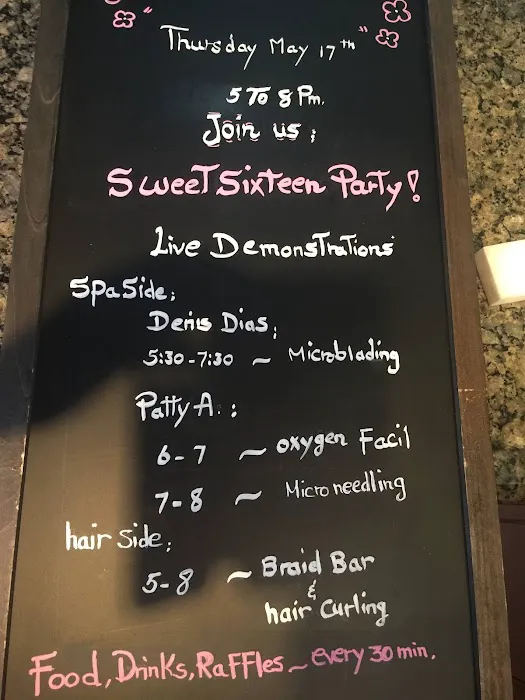 Thursday May 17th"
5 To 8 Pm.
Join us;
Sweet Sixteen Party!
Live Demonstrations
Spa Side;
Denis Dias;
5:30-7:30 ~ Microblading
Patty A.:
6-7 ~ oxygen Facil
7-8 ~ Microneedling
hair Side;
5-8 ~ Braid Bar
&
hair Curling
Food, Drinks, Raffles ~ every 30 min.